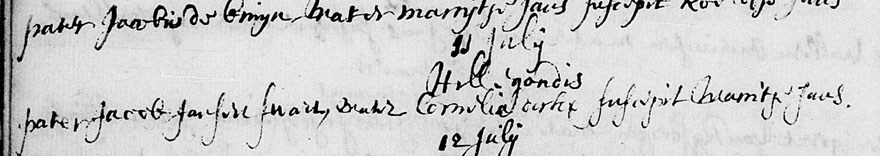 pater Jacobus de bruijn mater marrytje Jans suscepit Roelofje Jans
11 July
Hillegondis
pater Jacob Jansen swart, mater Cornelia suscepit Marritje Jans.
12 July